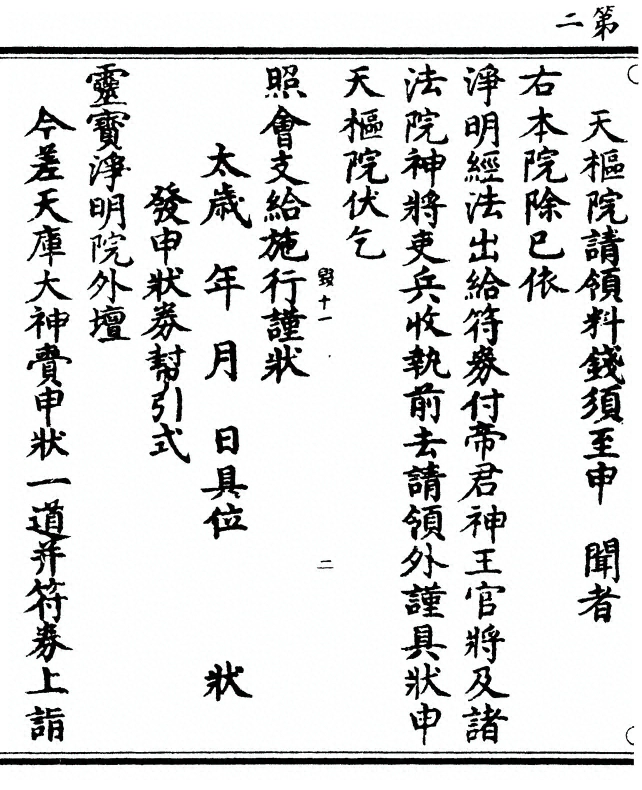 第二
天樞院請領料錢須至申　聞者
右本院除已依
淨明經法出給符券付帝君神王官將及諸
法院神將吏兵收執前去請領外謹具狀申
天樞院伏乞
毀十一　二
照會支給施行謹狀
太歲　年　月　日具位　狀
發申狀券幇引式
靈寶淨明院外壇
今差天庫大神賫申狀一道并符券上詣